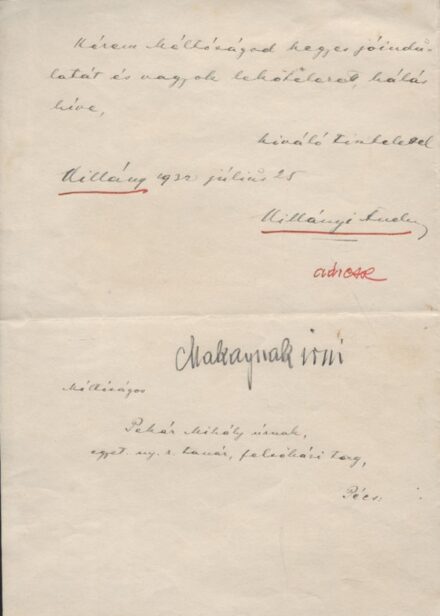 Kérem Méltóságod kegyes jóindu-
latát és vagyok lekötelezett, hálás
híve,
kiváló tisztelettel
Villány 1932 július 25
Villányi
adresse
Makaynak írni
Méltóságos
Pekár Mihály úrnak,
egyet. ny. r. tanár, felsőházi tag,
Pécs.